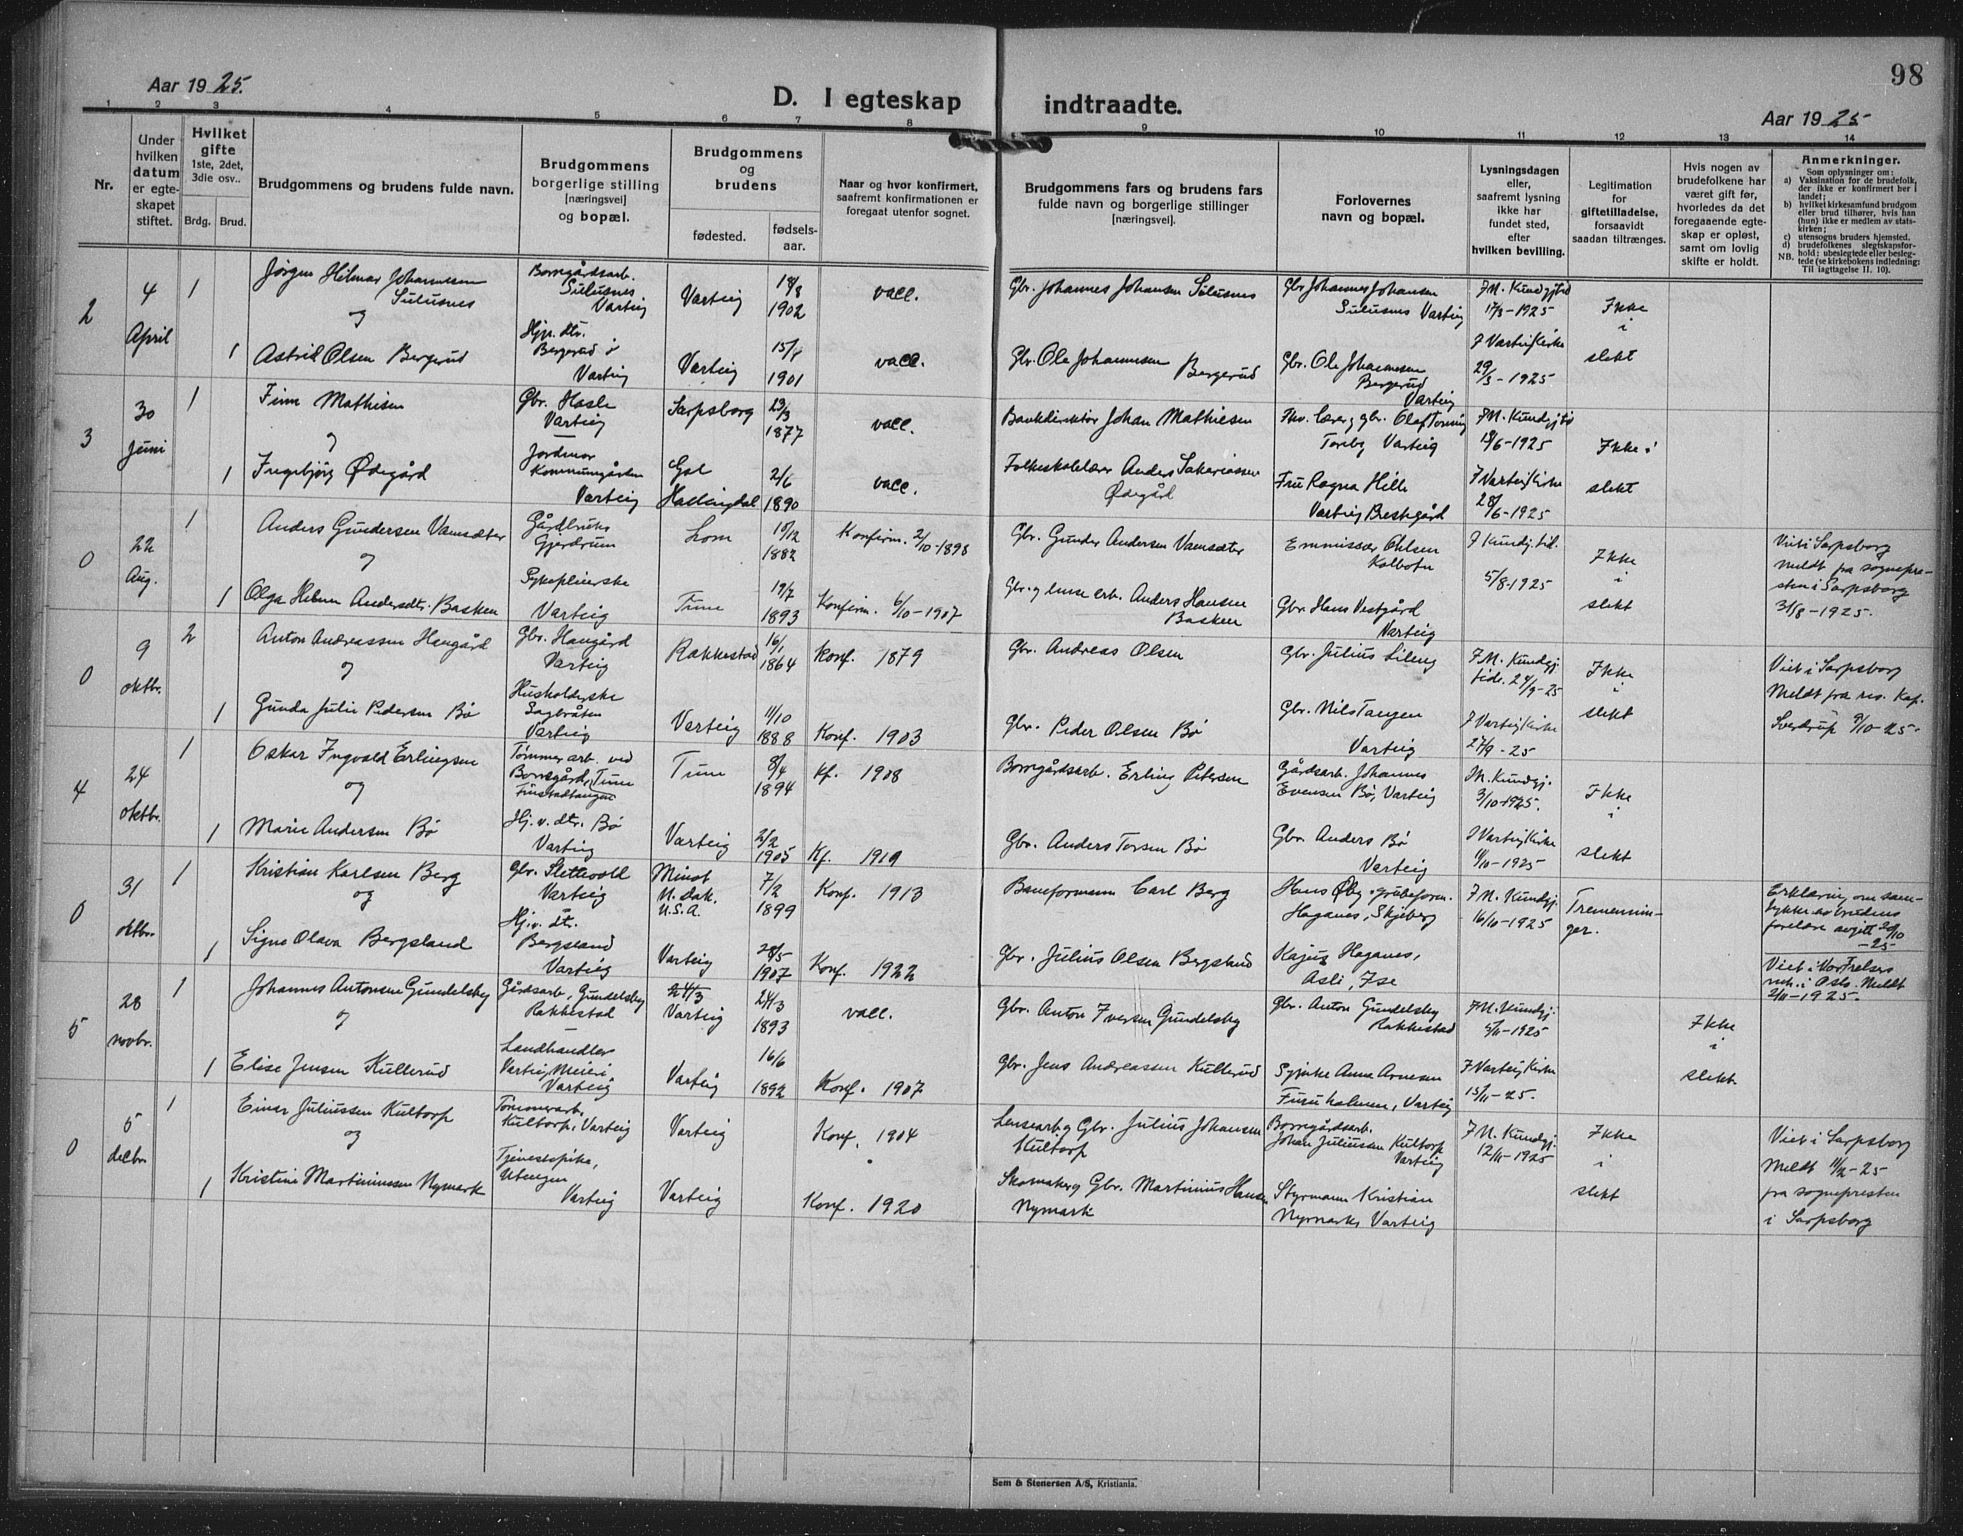 98
Aar 1925.
D. I egteskap indtraadte.
Aar 1925
1 2 3 4 5 6 7 8 9 10 11 12 13 14
Nr.
Under hvilken datum er egteskapet stiftet.
Hvilket gifte
1ste, 2det, 3die osv..
Brdg. Brud.
Brudgommens og brudens fulde navn.
Brudgommens borgerlige stilling [næringsvei] og bopæl.
Brudgommens og brudens
fødested.
fødselsaar.
Naar og hvor konfirmert, saafremt konfirmationen er foregaat utenfor sognet.
Brudgommens fars og brudens fars fulde navn og borgerlige stillinger [næringsvei]
Forlovernes navn og bopæl.
Lysningsdagen eller, saafremt lysning ikke har fundet sted, efter hvilken bevilling.
Legitimation for giftetilladelse, forsaavidt saadan tiltrænges.
Hvis nogen av brudefolkene har været gift før, hvorledes da det foregaaende egteskap er opløst, samt om lovlig skifte er holdt.
Anmerkninger.
Som oplysninger om:
a) Vaksination for de brudefolk, der ikke er konfirmert her i landet;
b) hvilket kirkesamfund brudgom eller brud tilhører, hvis han (hun) ikke er medlem av statskirken;
c) utensogns bruders hjemsted.
d) brudefolkenes slegtskapsforhold; ubeslegtede eller beslegtede (se kirkebokens indledning:
NB. Til iagttagelse II. 10).
2 4 April 1 Jørgen Hilmar Johannesen Sulusnes Borregårdsarb. Sulusnes Varteig Varteig 1902 vacc. Gbr. Johannes Johansen Sulusnes Gbr. Johannes Johansen Sulusnes Varteig F.M. Kundgjtid 17/3-1925 Ikke i
og
1 Astrid Olsen Bergerud Hjv. dtr. Bergerud i Varteig Varteig 1901 vacc. Gbr. Ole Johannesen Bergerud Gbr. Ole Johannesen Bergerud Varteig I Varteig Kirke 29/3-1925 slekt
3 30 Juni 1 Finn Mathisen Gbr. Hasle Varteig Sarpsborg 23/3 1877 vacc. Bankdirektør Johan Mathiesen lærer, gbr. Olaf Toreby Varteig F.M. Kundgjtid 18/6-1925 Ikke i
og
1 Ingebjørg Ødegård Jordmor Kommunegården Varteig Gol Hallingdal 2/6 1890 vacc. Folkeskolelærer Anders Sakariassen Ødegård Fru Ragna Hille Varteig Prestegård I Varteig Kirke 28/6-1925 slekt
0 22 Aug. 1 Anders Gundersen Vamsæter Gårdbruks Gjerdrum Lom 15/12 1882 Konfirm. 2/10-1898 Gbr. Gunder Andersen Vamsæter Emmissær Ohlsen Kolbotn F Kundgj. tid. 5/8-1925 Ikke i Viet i Sarpsborg meldt fra sognepresten i Sarpsborg 31/8-1925.
og
1 Olga Helene Andersdtr. Basken Sykepleierske Varteig Tune 19/7 1893 Konfirm. 6/10-1907 Gbr. og lense arb. Anders Hansen Basken Gbr. Hans Vestgård Varteig slekt
0 9 oktbr. 2 Anton Andreassen Haugård Gbr. Haugård Varteig Rakkestad 16/1 1864 Konf. 1879 Gbr. Andreas Olsen Gbr. Julius Lileng F.M. Kundgj. tide. 24/9-25 Ikke i Viet i Sarpsborg Meldt fra res. Kap. Sverdrup 9/10-25.
og
1 Gunda Julie Pedersen Bø Husholderske Sagbråten Varteig Varteig 11/10 1888 Konf. 1903 Gbr. Peder Olsen Bø Gbr. Nils Tangen Varteig I Varteig Kirke 27/9-25 slekt
4 24 oktbr. 1 Oskar Ingvald Erlingsen Tømmerarb. ved Borregård, Tune Tune 8/4 1894 Kf. 1908 Borregårdsarb. Erling Petersen Gårdsarb. Johannes Evensen Bø, Varteig M. Kundgj. 3/10-1925. Ikke i
og
1 Marie Andersen Bø Hj. v. dtr. Bø Varteig Varteig 2/2 1905 Kf. 1919 Gbr. Anders Torsen Bø Gbr. Anders Bø Varteig I Varteig Kirke 11/10-1925 slekt
0 31 oktbr. 1 Kristian Karlsen Berg Gbr. Slettevold Varteig Minot N. Dak. U.S.A. 7/2 1899 Konf. 1913 Baneformann Carl Berg Hans Øby, grubeform. Haganes, Skjeberg F.M. Kundgj. 16/10-1925 Tremenninger. Erklæring om samtykke av brudens foreldre avgitt 20/10-25
og
1 Signe Olava Bergsland Hj. v. dtr. Bergsland Varteig Varteig 28/5 1907 Konf. 1922 Gbr. Julius Olsen Bergsland Kajus Haganes, Asli, Ise Viet i Vor Frelsers Oslo. Meldt 2/11-1925.
5 28 novbr. 1 Johannes Antonsen Gundelsby Gårdsarb. Gundelsby Rakkestad Varteig 24/3 1893 vacc. Gbr. Anton Iversen Gundelsby Gbr. Anton Gundelsby Rakkestad F.M. Kundgj. 5/11-1925 Ikke i
og
1 Elise Jensen Kullerud Landhandler Varteig Meieri Varteig Varteig 16/6 1892 Konf. 1907 Gbr. Jens Andreassen Kullerud Sypike Anna Arnesen Furuholmen, Varteig I Varteig Kirke 15/11-25. slekt
0 5 decbr. 1 Einar Juliussen Kultorp Tømmerarb. Kultorp, Varteig Varteig Konf. 1904 Lensearb og Gbr. Julius Johansen Kultorp Borregårdsarb. Johan Juliussen Kultorp Varteig F.M. Kundgj. 12/11-1925 Ikke i Viet i Sarpsborg Meldt 11/12-25 fra sognepresten i Sarpsborg
og
1 Kristine Martiniussen Nymark Tjenestepike, Utengen Varteig Varteig Konf. 1920 Skomaker og Gbr. Martinius Hansen Nymark Styrmann Kristian Nymark, Varteig slekt
Sem & Stenersen A/S, Kristiania.